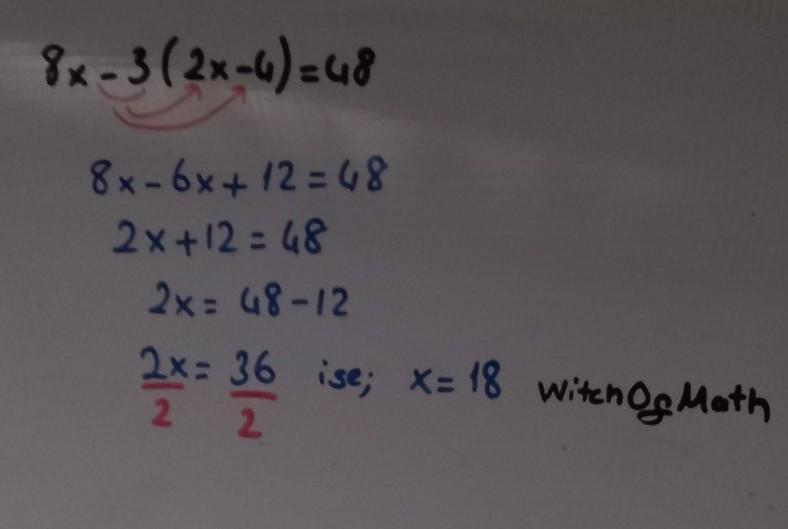 8x-3(2x-4)=48
8x-6x+12=48
2x+12=48
2x=48-12
2x/2=36/2 ise; x=18 WitchOfMath